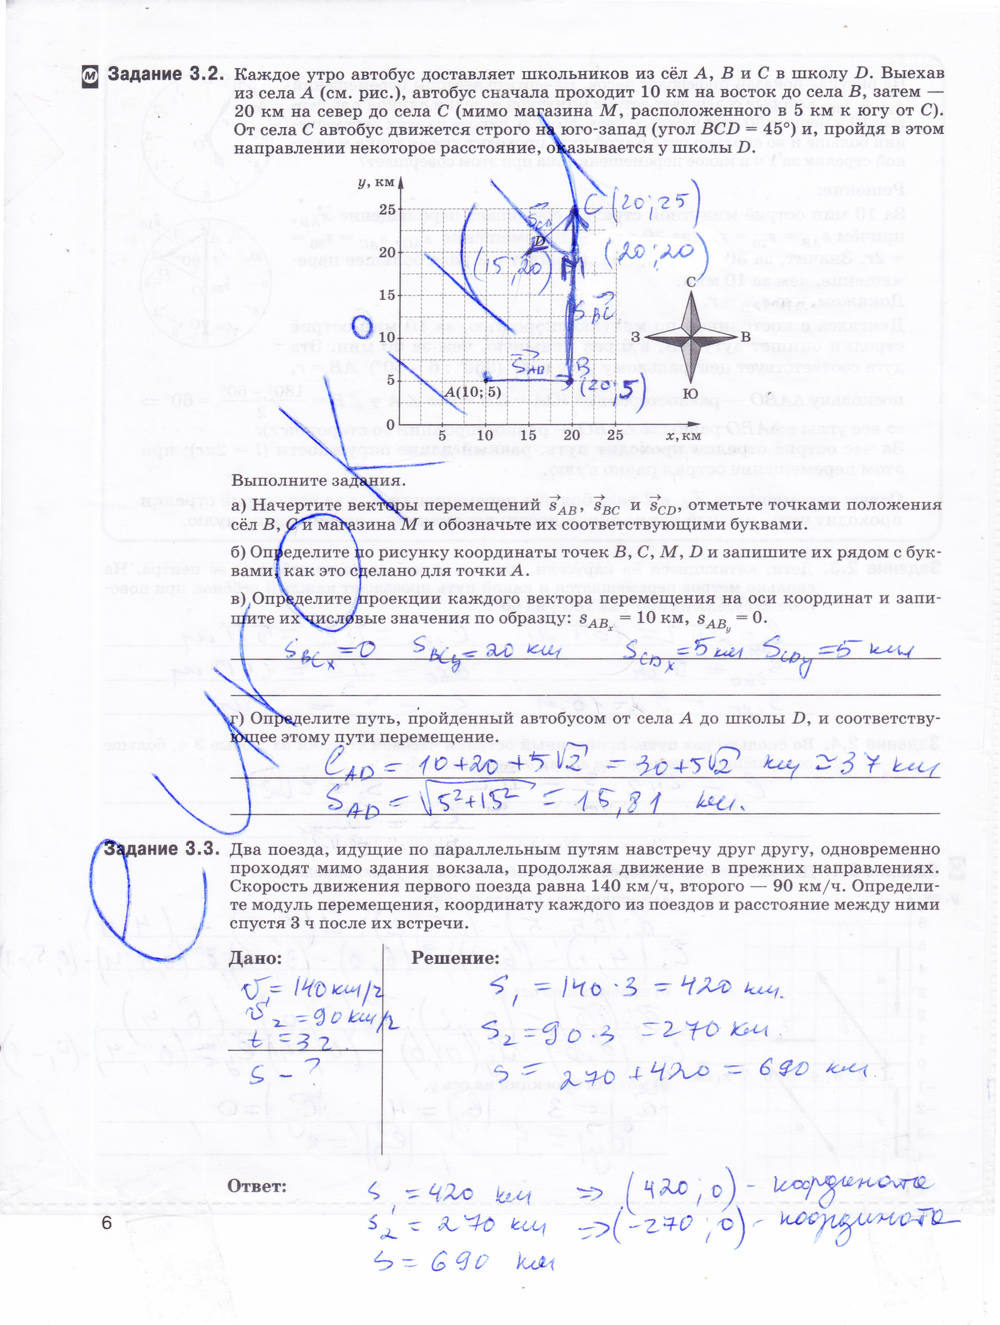 Задание 3.2. Каждое утро автобус доставляет школьников из сёл A, B и C в школу D. Выехав
из села A (см. рис.), автобус сначала проходит 10 км на восток до села B, затем —
20 км на север до села C (мимо магазина M, расположенного в 5 км к югу от C).
От села C автобус движется строго на юго-запад (угол BCD = 45°) и, пройдя в этом
направлении некоторое расстояние, оказывается у школы D.
y, км
25
C (20; 25)
S⃗CD
D
20
(15; 20)
M
(20; 20)
15
S⃗BC
С
10
З
В
S⃗AB
B
5
A(10; 5)
(20; 5)
Ю
0
5 10 15 20 25 x, км
Выполните задания.
а) Начертите векторы перемещений s⃗AB, s⃗BC и s⃗CD, отметьте точками положения
сёл B, C и магазина M и обозначьте их соответствующими буквами.
б) Определите по рисунку координаты точек B, C, M, D и запишите их рядом с бук-
вами, как это сделано для точки A.
в) Определите проекции каждого вектора перемещения на оси координат и запи-
шите их числовые значения по образцу: sABx = 10 км, sABy = 0.
SBCx = 0 SBCy = 20 км SCDx = 5 км SCDy = 5 км
г) Определите путь, пройденный автобусом от села A до школы D, и соответству-
ющее этому пути перемещение.
ℓAD = 10+20+5√2 = 30+5√2 км ≃ 37 км
SAD = √5²+15² = 15,81 км.
Задание 3.3. Два поезда, идущие по параллельным путям навстречу друг другу, одновременно
проходят мимо здания вокзала, продолжая движение в прежних направлениях.
Скорость движения первого поезда равна 140 км/ч, второго — 90 км/ч. Определи-
те модуль перемещения, координату каждого из поездов и расстояние между ними
спустя 3 ч после их встречи.
Дано: Решение:
v₁ = 140 км/ч S₁ = 140 · 3 = 420 км.
v₂ = 90 км/ч S₂ = 90 · 3 = 270 км.
t = 3 ч
S - ? S = 270 + 420 = 690 км.
Ответ: S₁ = 420 км => (420; 0) - координата
S₂ = 270 км => (-270; 0) - координата
S = 690 км
6